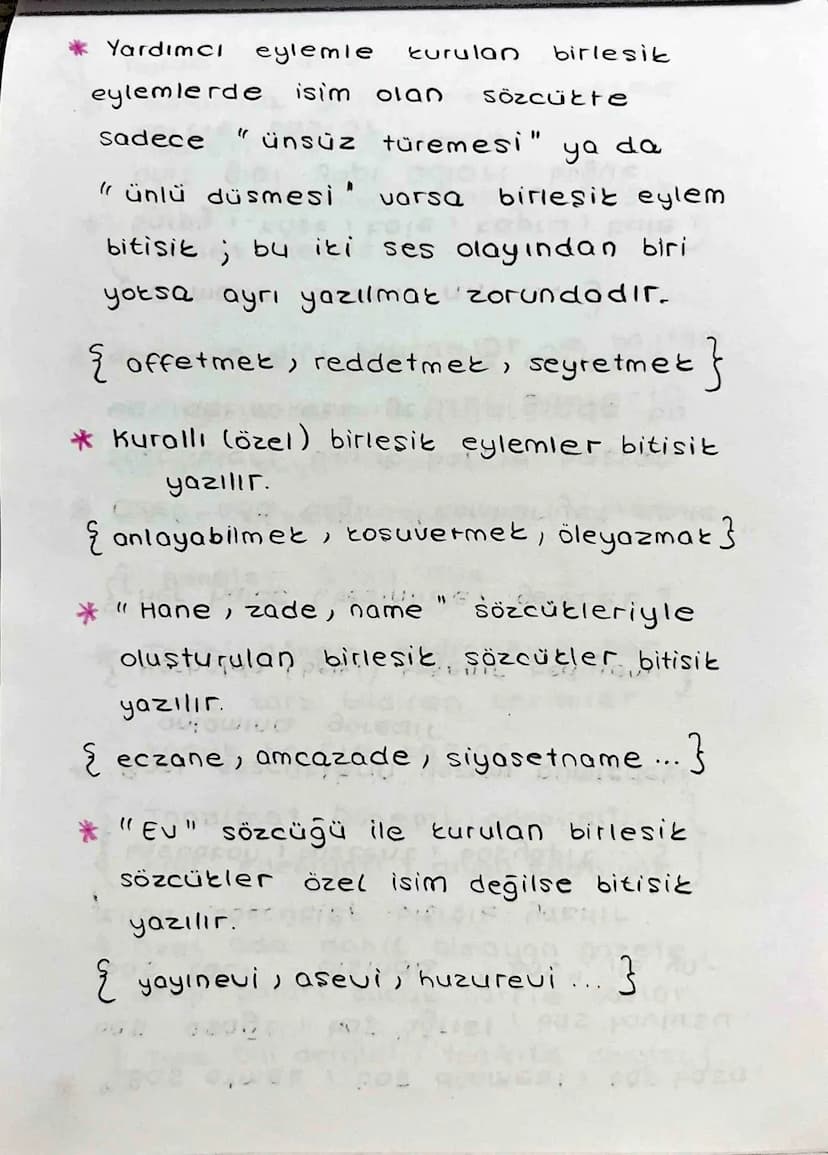 * Yardımcı eylemle kurulan birleşik
eylemlerde isim olan sözcükte
sadece "ünsüz türemesi" ya da
"ünlü düşmesi" varsa birleşik eylem
bitişik ; bu iki ses olayından biri
yoksa ayrı yazılmak zorundadır.
{ affetmek , reddetmek , seyretmek }
* Kurallı (özel) birleşik eylemler bitişik
yazılır.
{ anlayabilmek , koşuvermek , öleyazmak }
* "Hane , zade , name" sözcükleriyle
oluşturulan birleşik sözcükler bitişik
yazılır.
{ eczane , amcazade , siyasetname ... }
* "Ev" sözcüğü ile kurulan birleşik
sözcükler özel isim değilse bitişik
yazılır.
{ yayınevi , aşevi , huzurevi ... }